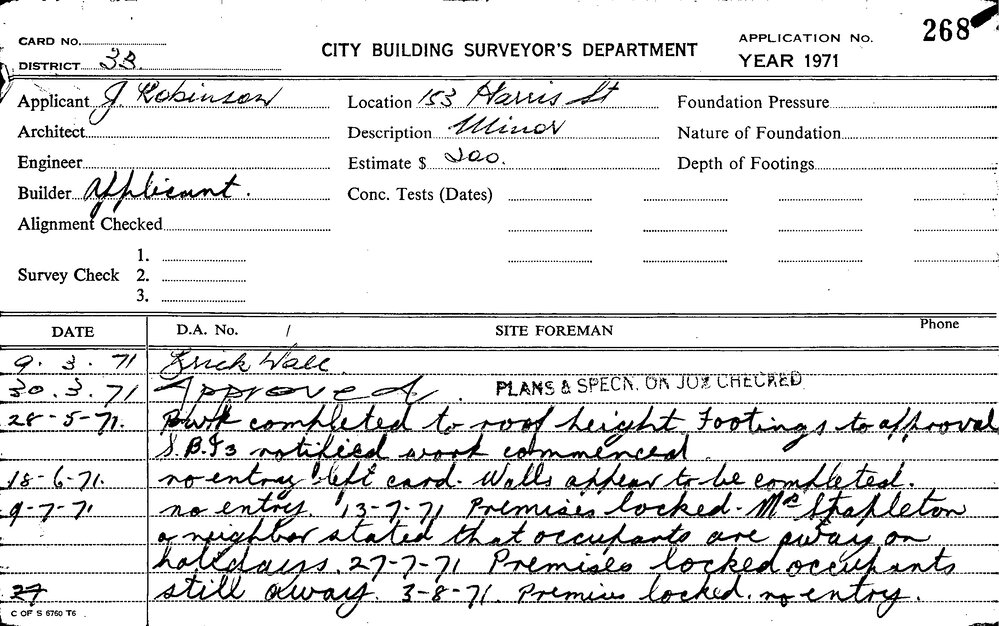 CARD No. CITY BUILDING SURVEYOR'S DEPARTMENT APPLICATION No. 268
DISTRICT 3B. YEAR 1971
Applicant J. Robinson Location 153 Harris St Foundation Pressure
Architect Description Minor Nature of Foundation
Engineer Estimate $ 200. Depth of Footings
Builder Applicant. Conc. Tests (Dates)
Alignment Checked
1.
Survey Check 2.
3.
DATE D.A. No. / SITE FOREMAN Phone
9.3.71 Brick Wall.
30.3.71 Approved. PLANS & SPECN. ON JOB CHECKED
28-5-71. Bwk completed to roof height. Footings to approval
notified work commenced.
18-6-71. no entry left card. Walls appear to be completed.
9-7-71 no entry. 13-7-71 Premises locked. Mrs Stapleton
a neighbor stated that occupants are away on
holidays. 27-7-71 Premises locked occupants
27 still away. 3-8-71. Premises locked. no entry.
C OF S 6760 T6